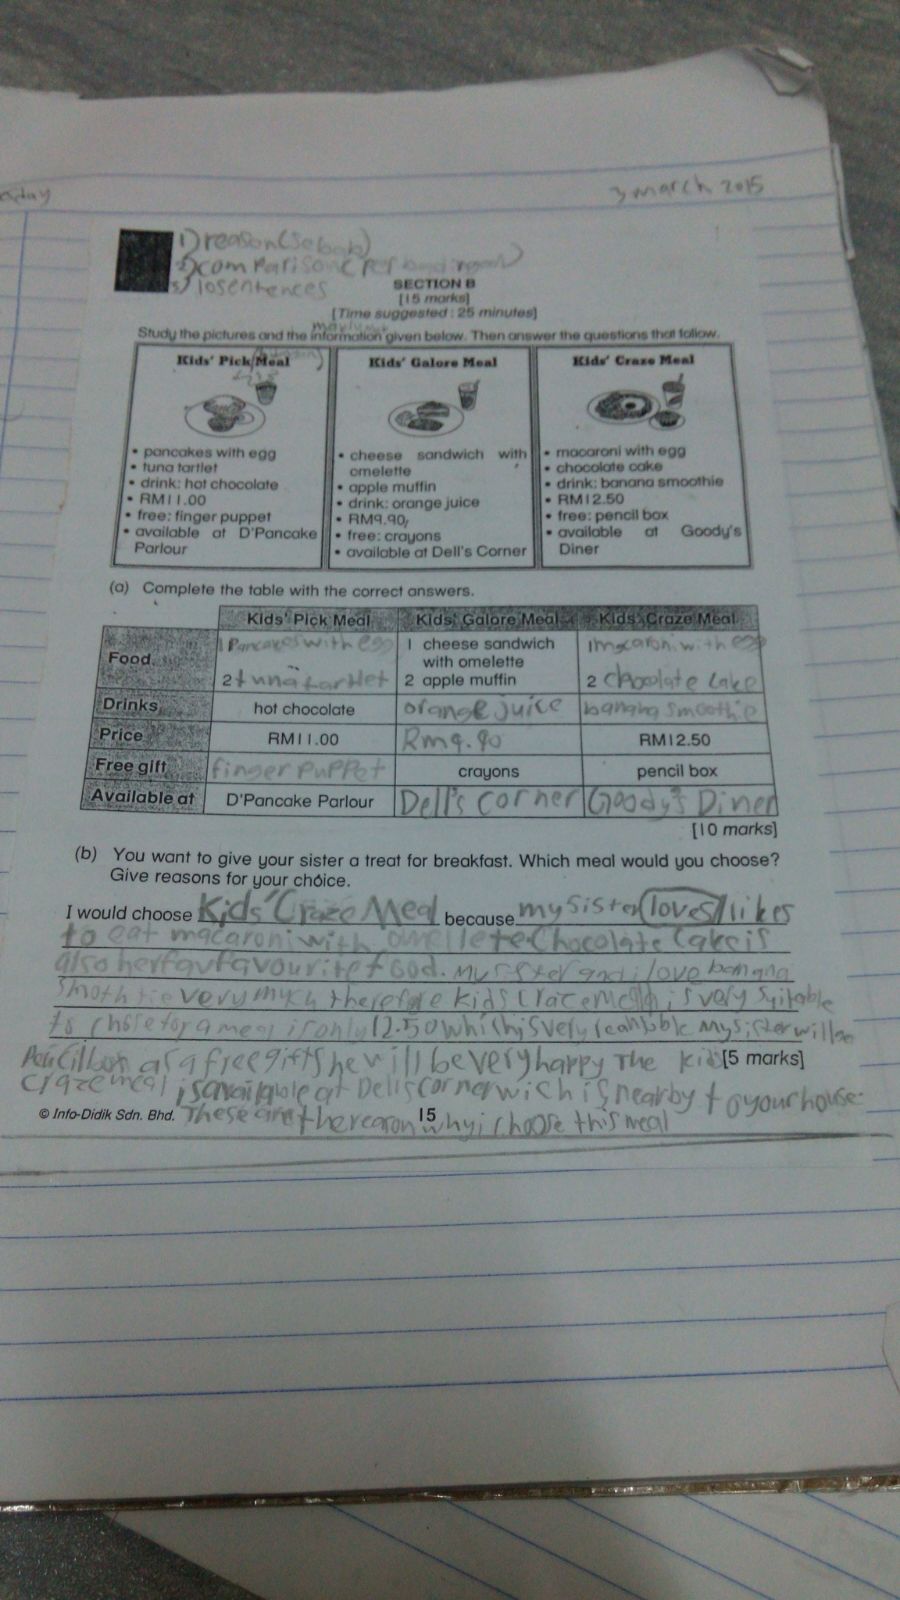 3 march 2015
1) reason (sebab)
2) comparison (
3) 10 sentences
SECTION B
[15 marks]
[Time suggested : 25 minutes]
Study the pictures and the information given below. Then answer the questions that follow.
Kids' Pick Meal
• pancakes with egg
• tuna tartlet
• drink: hot chocolate
• RM11.00
• free: finger puppet
• available at D'Pancake
Parlour
Kids' Galore Meal
• cheese sandwich with
omelette
• apple muffin
• drink: orange juice
• RM9.90
• free: crayons
• available at Dell's Corner
Kids' Craze Meal
• macaroni with egg
• chocolate cake
• drink: banana smoothie
• RM12.50
• free: pencil box
• available at Goody's
Diner
(a) Complete the table with the correct answers.
Kids' Pick Meal Kids' Galore Meal Kids' Craze Meal
Food 1 Pancakes with egg 1 cheese sandwich 1 macaroni with egg
with omelette
2 tuna tartlet 2 apple muffin 2 chocolate cake
Drinks hot chocolate orange juice banana smoothie
Price RM11.00 Rm9.90 RM12.50
Free gift finger Puppet crayons pencil box
Available at D'Pancake Parlour Dell's Corner Goody's Diner
[10 marks]
(b) You want to give your sister a treat for breakfast. Which meal would you choose?
Give reasons for your choice.
I would choose Kids' Craze Meal because my sister loves/likes
to eat macaroni with Chocolate cake is
also her favourite food. my sister and i love banana
very much therefore kids craze meal is very suitable
to for a meal is only 12.50 which is very my sister will
as a free gift she will be very happy The kids [5 marks]
craze meal is available at Dells corner wich is nearby to your house.
These are the reason why i choose this meal
© Info-Didik Sdn. Bhd. 15